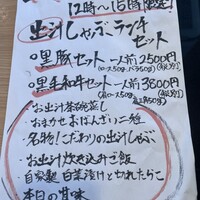 12時〜15時限定!
出汁しゃぶランチ
セット
○黒豚セット 一人前2500円
(税込)
○黒毛和牛セット 一人前3800円
(税込)
・お出汁茶碗蒸し
・おまかせおばんざい二種
・名物!こだわりの出汁しゃぶ
・お出汁炊き込みご飯
・自家製 白菜漬けと切れたらこ
本日の甘味